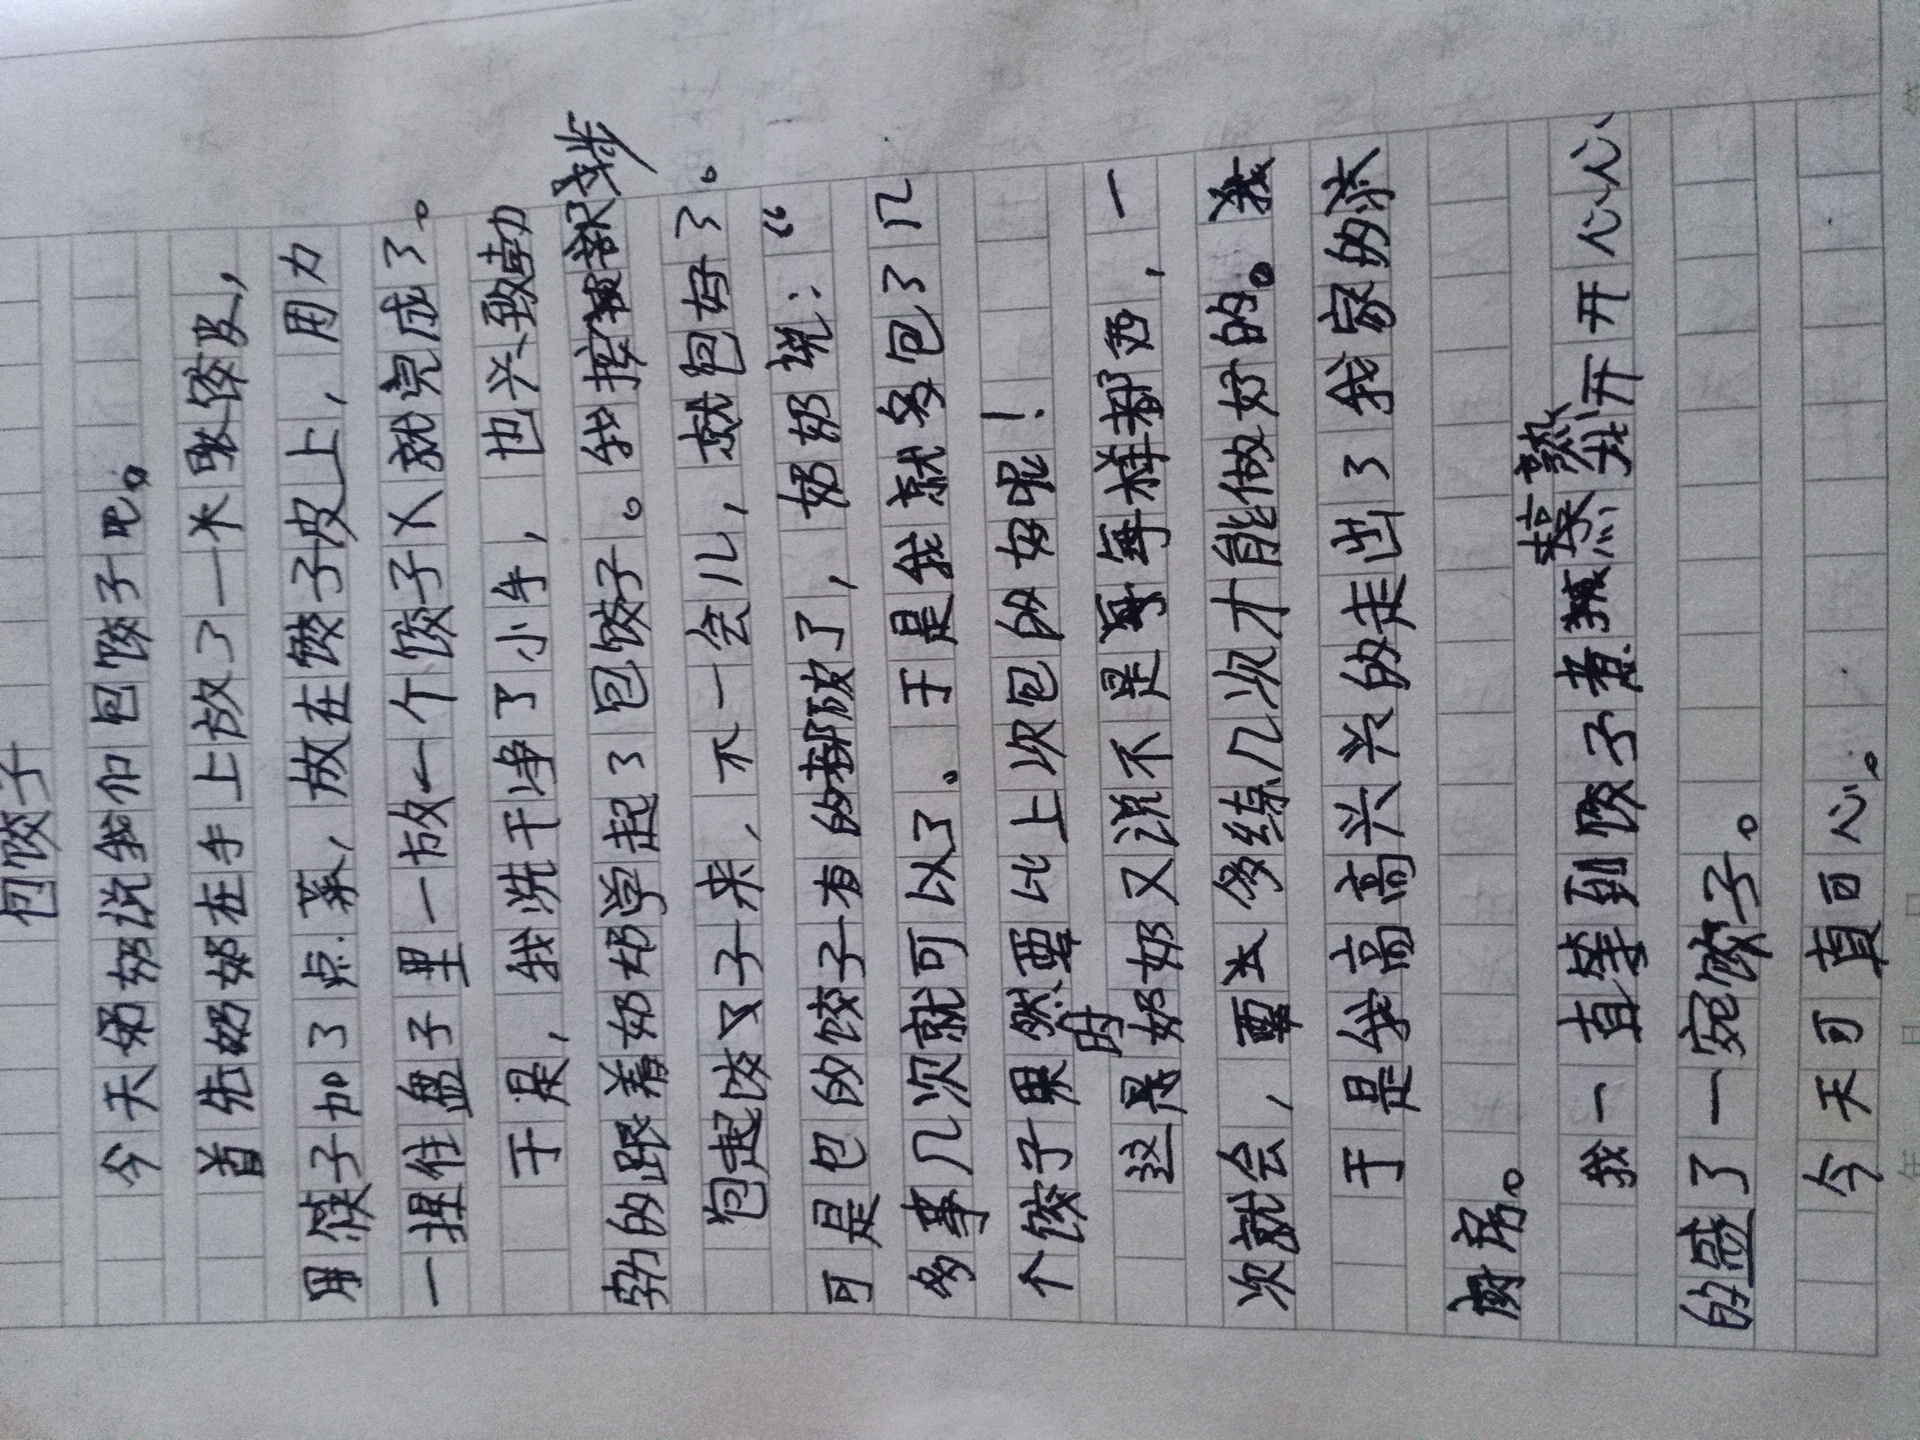 包饺子
今天奶奶说我们包饺子吧。
首先奶奶在手上放了一个饺皮，
用筷子加了点菜，放在饺子皮上，用力
一捏住盘子里一放一个饺子又就完成了。
于是，我洗干净了小手，也兴致勃
勃的跟着奶奶学起了包饺子。我按照步
包起饺子来，不一会儿，就包好了。
可是包的饺子有的都破了，奶奶说：“
多事几次就可以了。于是我就多包了几
个饺子果然要比上次包的好呢！
这时奶奶又说不是每样都西，一
次就会，要多练几次才能做好的。
于是我高高兴兴的走出了我家的
厨房。
我一直等到饺子煮熟我开开心心
的盛了一宛饺子。
今天可真回心。